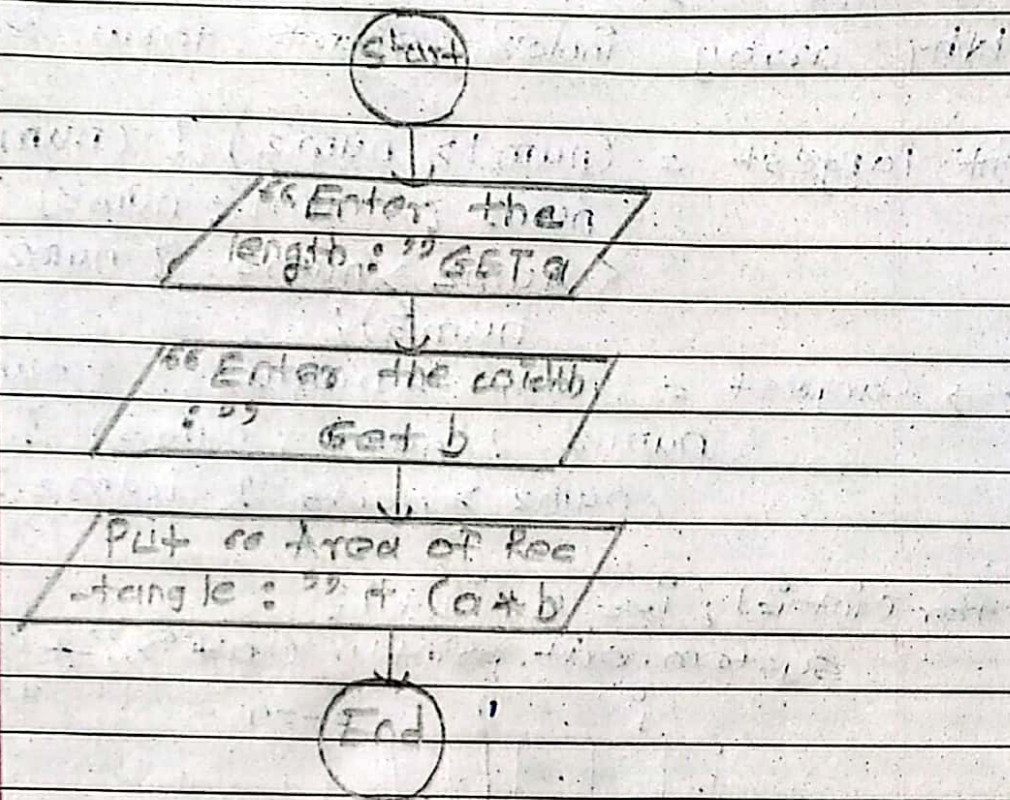 Start
“Enter then
length : ” GET a
“Enter the width
: ” Get b
Put “ Area of Rec
-tangle : ” + (a * b
End